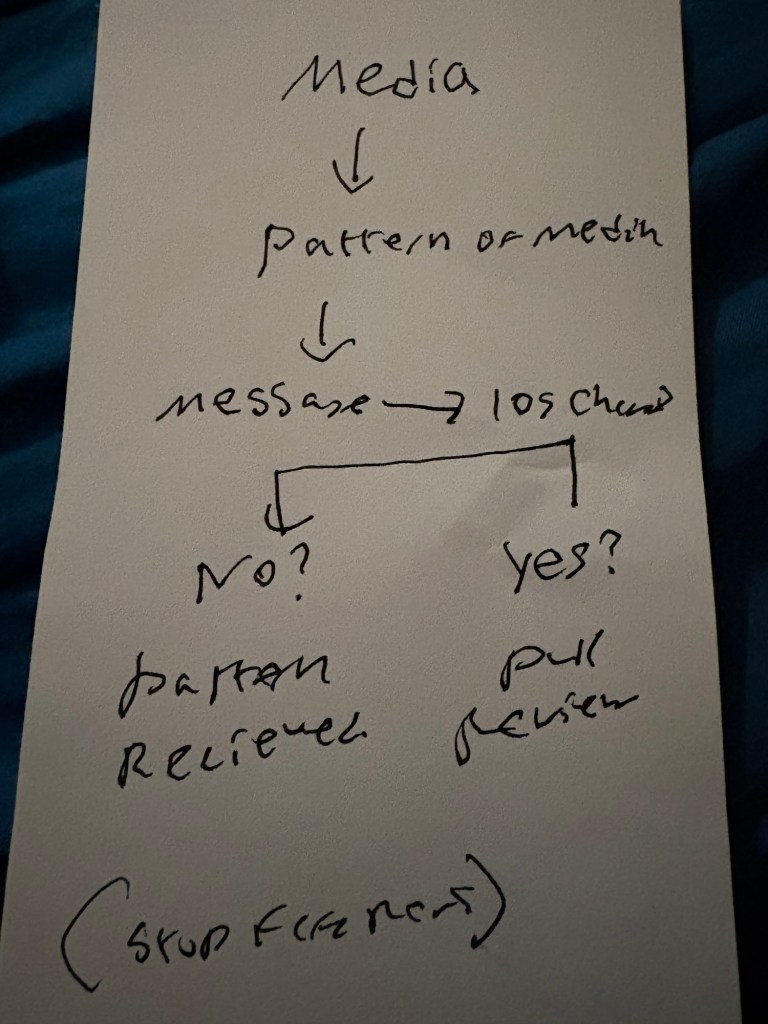 Media
pattern of media
message → 
No? yes?
pattern pull
Recieved review
(stop